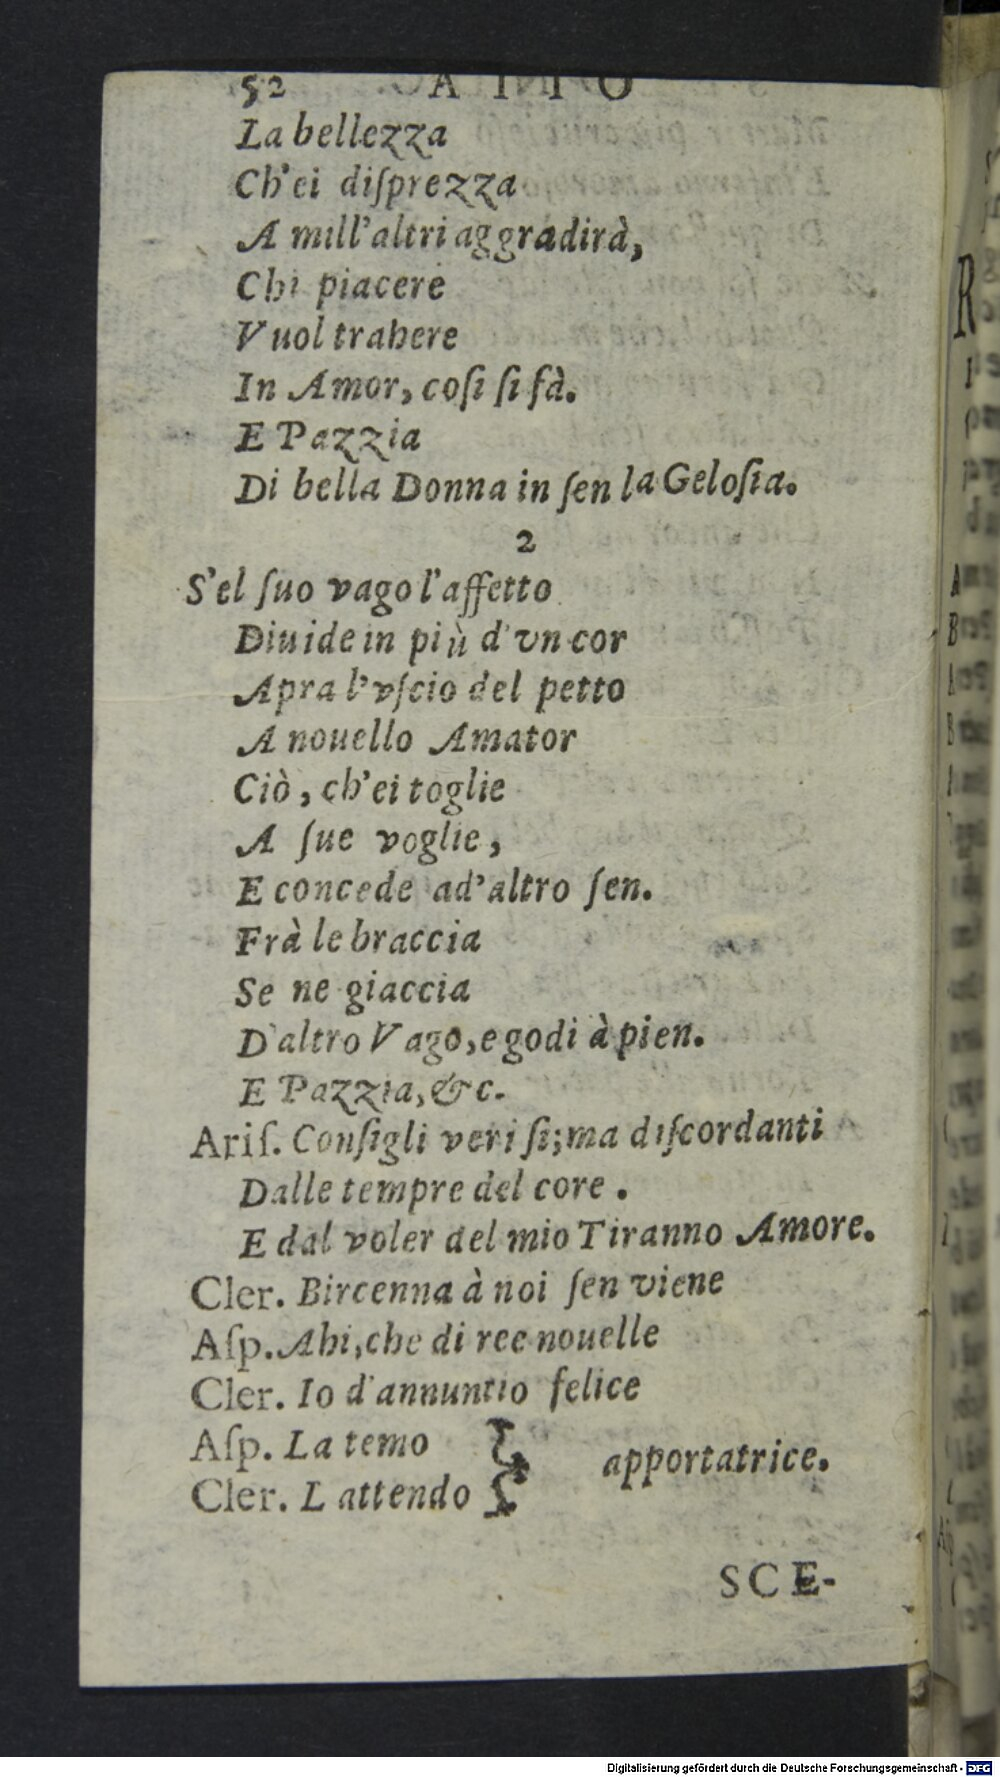 52 ATTO
La bellezza
Ch'ei diſprezza
A mill'altri aggradirà,
Chi piacere
Vuol trahere
In Amor, coſi ſi fà.
E Pazzia
Di bella Donna in ſen la Geloſia.
2
S'el ſuo vago l'affetto
Diuide in più d'vn cor
Apra l'vſcio del petto
A nouello Amator
Ciò, ch'ei toglie
A ſue voglie,
E concede ad'altro ſen.
Frà le braccia
Se ne giaccia
D'altro Vago, e godi à pien.
E Pazzia, &c.
Ariſ. Conſigli veri ſi; ma diſcordanti
Dalle tempre del core.
E dal voler del mio Tiranno Amore.
Cler. Bircenna à noi ſen viene
Aſp. Ahi, che di ree nouelle
Cler. Io d'annuntio felice
Aſp. La temo
Cler. L attendo } apportatrice.
SCE-
Digitalisierung gefördert durch die Deutsche Forschungsgemeinschaft - DFG